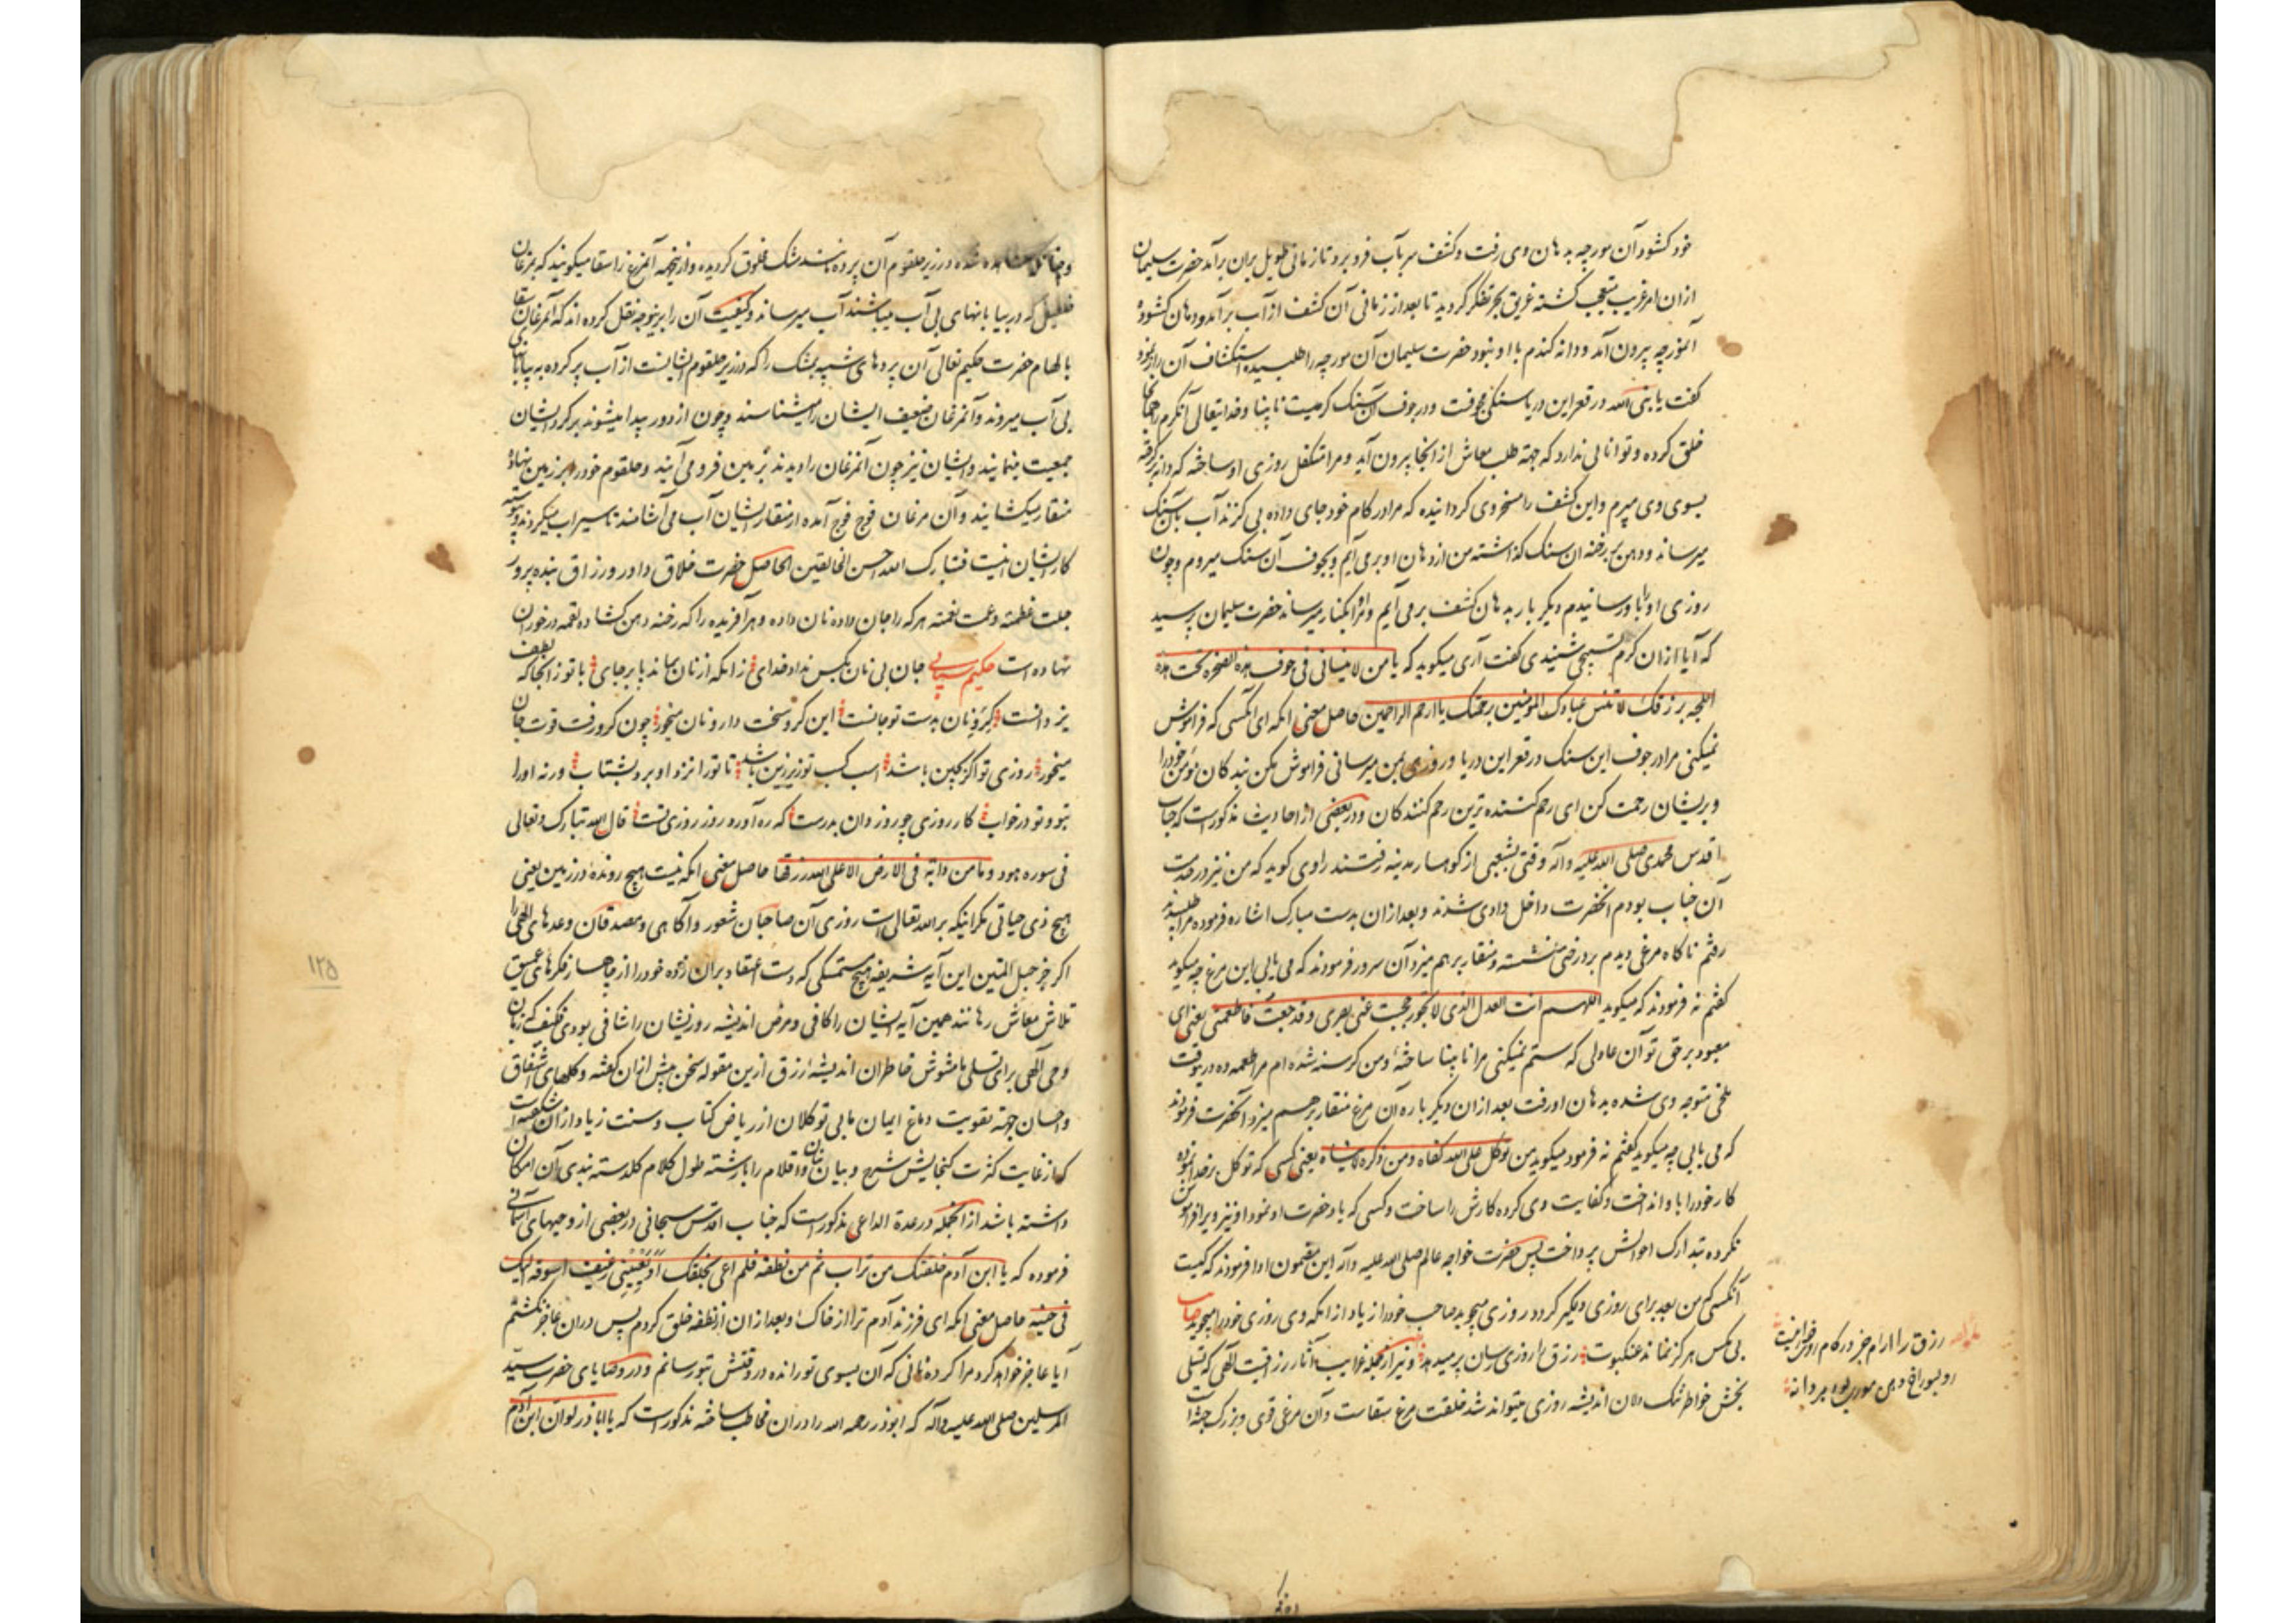 خود کشود و آن مورچه بدهان وی رفت و کشف سر بآب فرو برد تا زمانی طویل بران برآمد حضرت سلیمان
ازان امر غریب متعجب کشته غریق بحر تفکر کردید تا بعد از زمانی آن کشف از آب برآمد و دهان کشود و
آنمورچه بیرون آمد و دانه کندم با او نبود حضرت سلیمان آن مورچه را طلبیده استکشاف آن راز نمود
کفت یا نبی الله در قعر این دریا سنکی مجوفست و در جوف آن سنک کرمیست نابینا و خدایتعالی آنکرم را در انجا
خلق کرده و توانائی ندارد که جهة طلب معاش از انجا بیرون آید و مرا متکفل روزی او ساخته که دانه بر کرفته
بسوی وی میبرم و این کشف را مسخر وی کردانیده که مرا در کام خود جای داده بی کزند آب بآن سنک
میرساند و دهن بر رخنه ان سنک کذاشته من از دهان او بر می آیم و بجوف آن سنک میروم و چون
روزی او را باو رسانیدم دیکر بار بدهان کشف بر می آیم و مرا بکنار میرساند حضرت سلیمان پرسید
که آیا ازان کرم تسبیحی شنیدی کفت آری میکوید که یا من لا ینسانی فی جوف هذه الصخرة تحت هذه
اللجه برزقک لا تنس عبادک المؤمنین برحمتک یا ارحم الراحمین حاصل معنی انکه ای آنکسی که فراموش
نمیکنی مرا در جوف این سنک در قعر این دریا و روزی بمن میرسانی فراموش مکن بندکان مؤمن خود را
و بریشان رحمت کن ای رحم کننده ترین رحم کنندکان و در بعضی از احادیث مذکور است که جناب
اقدس محمدی صلی الله علیه و آله وقتی بشعبی از کوهسار مدینه رفتند راوی کوید که من نیز در خدمت
آن جناب بودم انحضرت داخل وادی شدند و بعد ازان بدست مبارک اشاره فرموده مرا طلبیدند
رفتم ناکاه مرغی دیدم بر درختی نشسته و منقار بر هم میزد آن سرور فرمودند که می یابی این مرغ چه میکوید
کفتم نه فرمودند که میکوید اللهم انت العدل الذی لا تجور حجبت عنی بصری و قد جعت فاطعمنی یعنی ای
معبود بر حق تو آن عادلی که ستم نمیکنی مرا نابینا ساختهٔ و من کرسنه شده ام مرا طعمه ده در ینوقت
ملخی متوجه وی شده بدهان او رفت بعد ازان دیکر باره آن مرغ منقار بر هم میزد انحضرت فرمودند
که می یابی چه میکوید کفتم نه فرمود میکوید من توکل علی الله کفاه و من ذکره لا ینساه یعنی کسی که توکل بر خدا نموده
کار خود را باو انداخت و کفایت وی کرده کارش را ساخت و کسی که یاد حضرت او نمود او نیز ویرا فراموش
نکرده بتدارک احوالش پرداخت پس حضرت خواجه عالم صلی الله علیه و آله این مضمون ادا فرمودند که کیست
آنکسی که من بعد برای روزی دلکیر کردد روزی میجوید صاحب خود را زیاد از انکه وی روزی خود را میجوید
بی مکس هرکز نماند عنکبوت رزق را روزی رسان پر میدهد و نیز از جمله غرایب آثار رزاقیت الهی که تسلی
بخش خواطر تنک دلان اندیشه روزی میتواند شد خلقت مرغ سقاست و آن مرغی قوی و بزرک جثه است
رزق را آرام جز در کام
مور بود پر دانه
در زیر حلقوم آن پرده مانند مشک مخلوق کردیده و از ینجهه آنمرغ را سقا میکویند که مرغان
که در بیابانهای بی آب میباشند آب میرساند و کیفیت آن را برینوجه نقل کرده اند که آنمرغان سقا
بالهام حضرت حکیم تعالی آن پردهای شبیه بمشک را که در زیر حلقوم ایشانست از آب پر کرده به بیابان
بی آب میروند و آنمرغان ضعیف ایشان را میشناسند و چون از دور پیدا میشوند بر کرد ایشان
جمعیت مینمایند و ایشان نیز چون آنمرغان را دیدند بر زمین فرو می آیند و حلقوم خود را بر زمین نهاده
منقار میکشایند و آن مرغان فوج فوج آمده از منقار ایشان آب می آشامند تا سیراب میکردند و پیوسته
کار ایشان اینست فتبارک الله احسن الخالقین الحاصل حضرت خلاق داور و رزاق بنده پرور
جلت عظمته و عمت نعمته هر که را جان داده نان داده و هر آفریده را که رخنه دهن کشاده لقمه در خور آن
نهاده است حکیم سنایی جان بی نان بکس نداد خدای زانکه از نان بماند جان بر جای با تو زانجا که لطف
یزدانست کرو نان بدست تو جانست این کرو سخت دار و نان میخور چون کرو رفت قوت جان
میخور روزی تو اکر بچین باشد اسب کسب تو زیر زین باشد تا تو را نزد او برد بشتاب ورنه او را
بتو و تو در خواب کار روزی چو روز دان بدرست که ره آورد روز روزی تست قال الله تبارک و تعالی
فی سوره هود و ما من دابة فی الارض الا علی الله رزقها حاصل معنی انکه نیست هیچ روندهٔ در زمین یعنی
هیچ ذی حیاتی مکر اینکه بر الله تعالی است روزی آن صاحبان شعور و آکاهی و مصدقان وعدهای الهی را
اکر جز حبل المتین این آیه شریفه هیچ مستمسکی که دست اعتقاد بران زده خود را از چاهسار فکرهای عمیق
تلاش معاش رهانند همین آیه ایشان را کافی و مرض اندیشه روزیشان را شافی بودی فکیف که زبان
وحی الهی برای تسلی مشوش خاطران اندیشهٔ رزق ازین مقوله سخن بیش ازان کفته و کلهای اشفاق
و احسان جهة تقویت دماغ ایمان مابی توکلان از ریاض کتاب و سنت زیاد ازان شکفته است
که از غایت کثرت کنجایش شرح و بیان و اقلام را با رشته طول کلام کلدسته بندی آن امکان
داشته باشد ازانجمله در عدة الداعی مذکور است که جناب اقدس سبحانی در بعضی از وحیهای آسمانی
فرموده که یا ابن آدم خلقتک من تراب ثم من نطفه فلم اعی بخلقک او یعیینی رغیف اسوقه الیک
فی حینه حاصل معنی انکه ای فرزند آدم ترا از خاک و بعد ازان از نطفه خلق کردم پس دران عاجز نکشتم
آیا عاجز خواهد کرد مرا کرده نانی که آن بسوی تو رانده در وقتش بتو رسانم و در وصایای حضرت سید
المرسلین صلی الله علیه و آله که ابوذر رحمه الله را دران مخاطب ساخته مذکور است که یا اباذر لو ان ابن آدم
۱۲۵